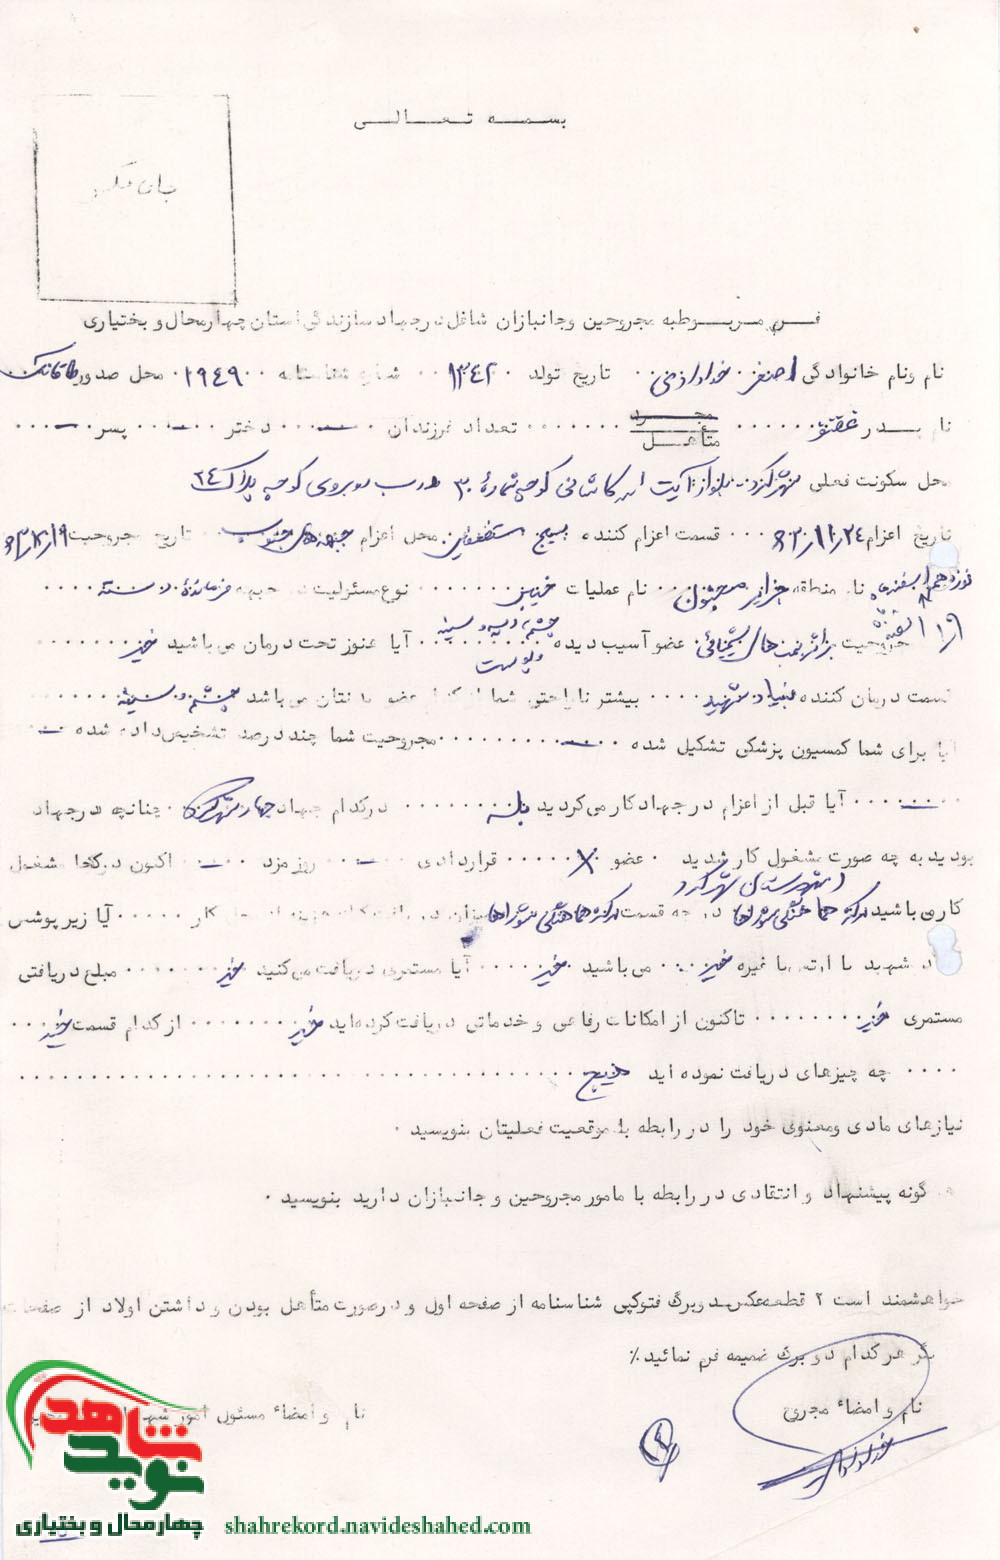 بسمه تعالی
جای عکس
فرم مربوط به مجروحین و جانبازان شاغل در جهاد سازندگی استان چهارمحال و بختیاری
نام و نام خانوادگی اصغر خدادادی تاریخ تولد ۱۳۴۲ شماره شناسنامه ۱۹۴۹ محل صدور طاقانک
نام پدر مجرد متأهل تعداد فرزندان ــ دختر ــ پسر ــ
محل سکونت فعلی شهرکرد بلوار آیت اله کاشانی کوچه شمارهٔ ۳۰ درب روبروی کوچه پلاک ۲۴
تاریخ اعزام ۶۳/۱۱/۲۴ قسمت اعزام کننده بسیج مستضعفین محل اعزام جبهه‌های جنوب تاریخ مجروحیت
نوزدهم اسفندماه نام منطقه جزایر مجنون نام عملیات خیبر نوع مسئولیت در جبهه فرماندهٔ دسته
مجروحیت براثر بمب های شیمیائی عضو آسیب دیده چشم، ریه و سینه و پوست آیا هنوز تحت درمان می باشید خیر
قسمت درمان کننده بنیاد شهید بیشتر ناراحتی شما از کدام عضو بدنتان می باشد چشم و سینه
آیا برای شما کمسیون پزشکی تشکیل شده ــ مجروحیت شما چند درصد تشخیص داده شده ــ
ــ آیا قبل از اعزام در جهاد کار می کردید بله در کدام جهاد جهاد شهرکرد چنانچه در جهاد
بودید به چه صورت مشغول کار شدید عضو X قراردادی ــ روز مزد ــ اکنون در کجا مشغول
شهرستان شهرکرد
کاری باشید مرکز هماهنگی شوراها در چه قسمت مرکز هماهنگی شوراها آیا زیر پوشش
شهید یا ارتش یا غیره خیر می باشید خیر آیا مستمری دریافت می کنید خیر مبلغ دریافتی
مستمری خیر تاکنون از امکانات رفاهی و خدماتی دریافت کرده اید خیر از کدام قسمت خیر
چه چیزهای دریافت نموده اید هیچ
نیازهای مادی و معنوی خود را در رابطه با موقعیت فعلیتان بنویسید .
گونه پیشنهاد و انتقادی در رابطه با مامور مجروحین و جانبازان دارید بنویسید .
خواهشمند است ۲ قطعه عکس دوبرگ فتوکپی شناسنامه از صفحه اول و در صورت متأهل بودن و داشتن اولاد از صفحات
دیگر هر کدام دو برگ ضمیمه فرم نمائید ٪
نام و امضاء مجری
نام و امضاء مسئول امور
نوید شاهد
چهارمحال و بختیاری
shahrekord.navideshahed.com